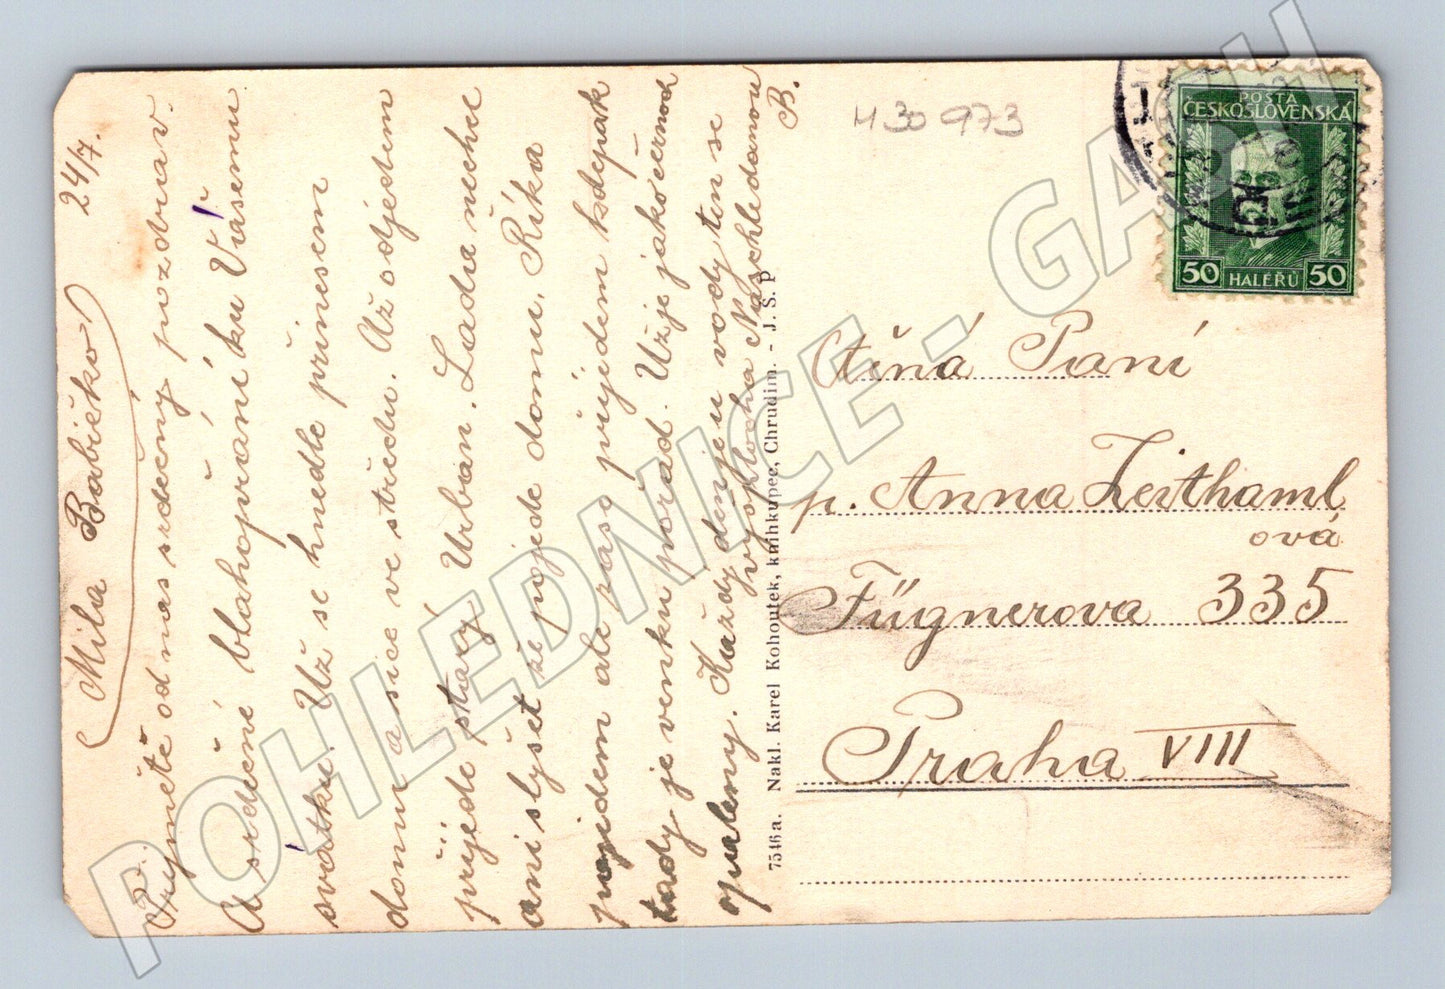 24/7.
Milá Babičko
Přijměte od nás srdečný pozdrav.
A srdečné blahopřání ku Vašemu
svátku. Už se hnedle přinesem
domu a sice ve středu. Až odjedem
přijede starý Urban. Ladia nechce
ani slyšet že pojede domu. Říká
pojedem ale zase přijedem kdepak
tady je venku pořád. Už je jako černoch
opálený. Každý den je u vody ten se
vyoplocha Naschledanou
B.
7546 a. Nakl. Karel Kohoutek, knihkupec, Chrudim. - J. Š. P
H30 973
POŠTA
ČESKOSLOVENSKÁ
50 HALÉŘŮ 50
Ctěná Paní
p. Anna Zeithaml
ová
Fügnerova 335
Praha VIII
POHLEDNICE - GARH